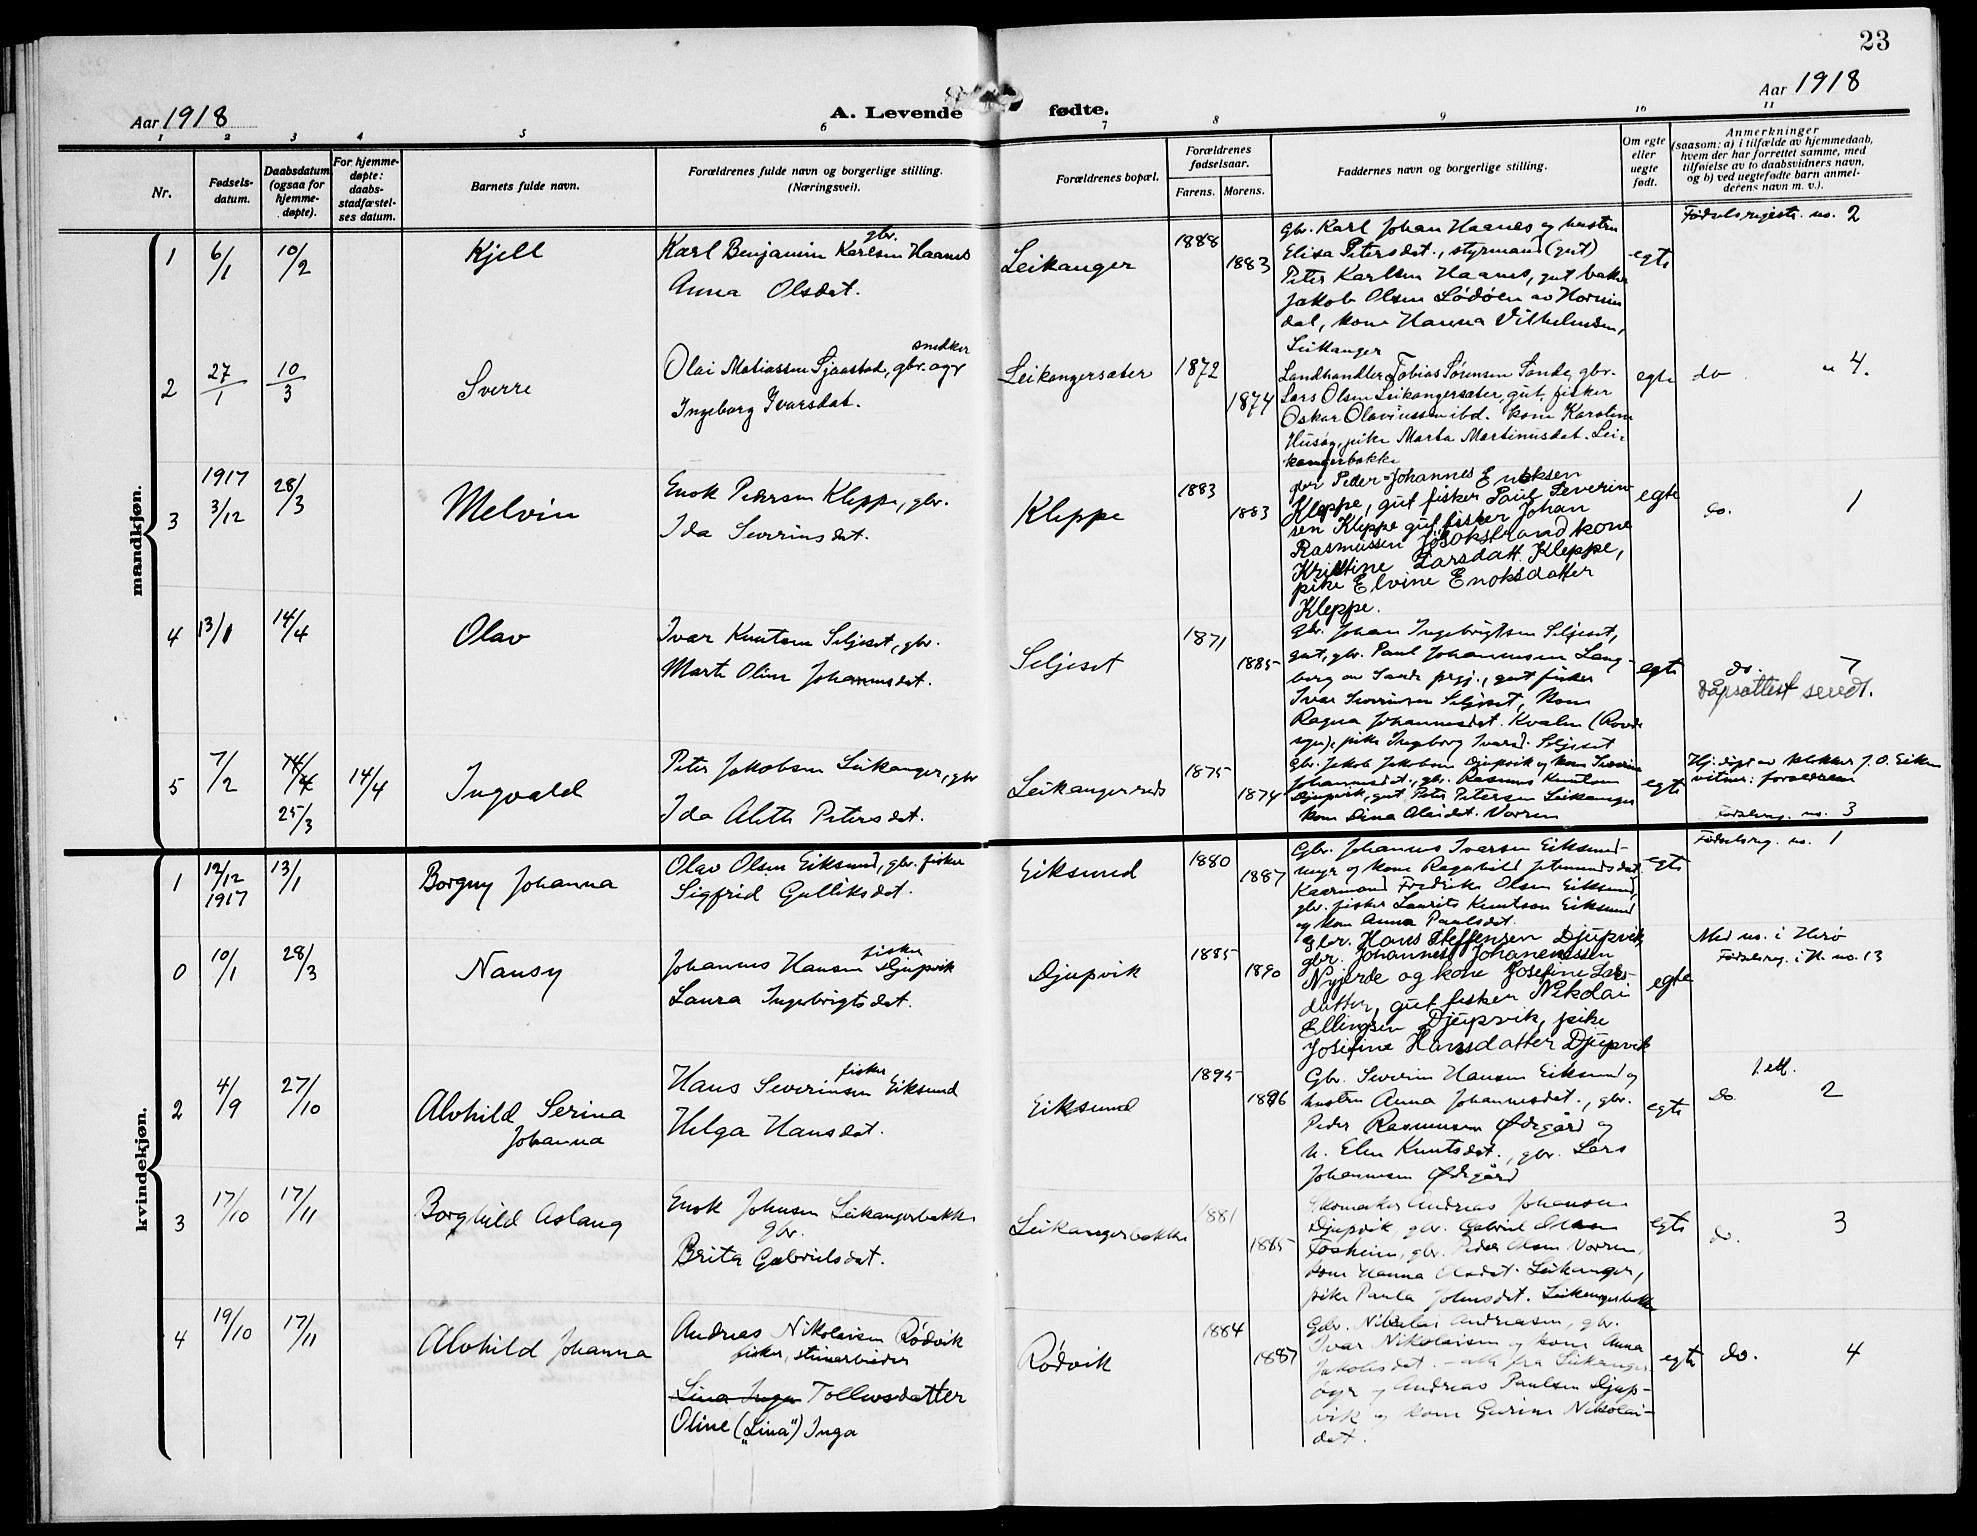 23
Aar 1918
A. Levende fødte.
Aar 1918
1 2 3 4 5 6 7 8 9 10 11
Nr.
Fødsels-
datum.
Daabsdatum
(ogsaa for
hjemme-
døpte).
For hjemme-
døpte:
daabs-
stadfæstel-
ses datum.
Barnets fulde navn.
Forældrenes fulde navn og borgerlige stilling.
(Næringsvei).
Forældrenes bopæl.
Forældrenes
fødselsaar.
Farens. Morens.
Faddernes navn og borgerlige stilling.
Om egte
eller
uegte
født.
Anmerkninger
(saasom: a) i tilfælde av hjemmedaab,
hvem der har forrettet samme, med
tilføielse av to daabsvidners navn,
og b) ved uegtefødte barn anmel-
derens navn m. v.).
mandkjøn.
1 6/1 10/2 Kjell
gbr.
Karl Benjamin Karlsen Haanes
Anna Olsdat.
Leikanger
1888
1883
gbr. Karl Johan Haanes og hustru
Elisa Petersdat., styrmand (gut)
Peter Karlsen Haanes, gut
Jakob Olsen Lødøen av Hornin
dal, kone Hanna Vilhelmsen,
Leikanger
egte
Fødselsregistr. no. 2
2 27/1 10/3 Sverre
snedker
Olai Matiassen Sjaastad, gbr. og
Ingeborg Ivarsdat.
Leikangersæter
1872
1874
Landhandler Tobias Sørensen Sande, gbr.
Lars Olsen Leikangersæter, gut, fisker
Oskar Olaviussen ibd. kone Karoline
Husøy, pike Marta Martinusdat. Lei-
kangerbakke
egte
do " 4.
3 1917 3/12 28/3 Melvin
Enok Petersen Kleppe, gbr.
Ida Severinsdat.
Kleppe
1883
1883
gbr Peder Johannes Enoksen
Kleppe, gut fisker Paul Severin
sen Kleppe gut fisker Johan
Rasmussen Jøsokstrand kone
Kristine Larsdatt. Kleppe,
pike Elvine Enoksdatter
Kleppe.
egte
do. 1
4 13/1 14/4 Olav
Ivar Knutsen Seljeset, gbr.
Marte Oline Johannesdat.
Seljeset
1871
1885
gbr. Johan Ingebrigtsen Seljeset,
gut, gbr. Paul Johannessen Lang-
berg av Sande prgj., gut fisker
Ivar Severinsen Seljeset, kone
Ragna Johannesdat. Kvalen (Rovde
sogn), pike Ingeborg Ivarsd. Seljeset
egte
do. 7
Dåpsattest sendt.
5 7/2 14/4 25/3 14/4 Ingvald
Peter Jakobsen Leikanger, gbr
Ida Aleth Petersdat.
1875
1874
gbr. Jakob Jakobsen Djupvik og kone
Johannesdat., gbr. Rasmus Knutsen
Djupvik, gut Peter Petersen Leikanger
kone Dina Olaidat. Vorren
egte
Hj. døpt av klokker J. O. Eiksu
vitner: forældrene
Fødselsreg. no. 3
kvindekjøn.
1 12/12 1917 13/1 Borgny Johanna
Olav Olsen Eiksund, gbr. fisker
Sigfrid Gulliksdat.
Eiksund
1880
1887
Gbr. Johannes Ivarsen Eiksund-
myr og kone Ragnhild Jetmundsdat.
Kaarmand Fredrik Olsen Eiksund,
gbr. fisker Laurits Knutson Eiksund
og kone Anna Paulsdat.
egte
Fødselsreg. no. 1
0 10/1 28/3 Nansy
fisker
Johannes Hansen Djupvik
Laura Ingebrigtsdat.
Djupvik
1885
1890
gbr. Hans Steffensen Djupvik,
gbr. Johannes Johannessen
Nyjerde og kone Josefine Lars-
datter, gut fisker Nikolai
Ellingsen Djupvik, pike
Josefine Hansdatter Djupvik
egte
Med no. i Herø
Fødselsreg. i H. no. 13
2 4/9 27/10 Alvhild Serina
Johanna
fisker
Hans Severinsen Eiksund
Helga Hansdat.
Eiksund
1895
1896
Gbr. Severin Hansen Eiksund og
hustru Anna Johannesdat., gbr.
Peder Rasmussen Ødegård og
h. Elen Knutsdat., gbr. Lars
Johannesen Ødegård
egte
do. 2
3 17/10 17/11 Borghild Aslaug
Enok Johnsen Leikangerbakke
gbr.
Brita Gabrielsdat.
Leikangerbakke
1881
1885
Skomaker Andreas Johansen
Djupvik, gbr. Gabriel Olsen
Toskeim, gbr. Peder Olsen Vorren,
kone Hanna Olsdat. Leikanger,
pike Paula Johnsdat. Leikangerbakke
egte
do. 3
4 19/10 17/11 Alvhild Johanna
Andreas Nikolaisen Rødvik
fisker, stenarbeider
Lina Inga Tollevsdatter
Oline („Lina") Inga
Rødvik
1884
1887
Gbr. Nikolai Andreasen, gbr.
Ivar Nikolaisen og kone Anna
Jakobsdat. - alle fra Leikanger
øyr og Andreas Paulsen Djup-
vik og kone Gurine Nikolai-
dat.
egte
do. 4